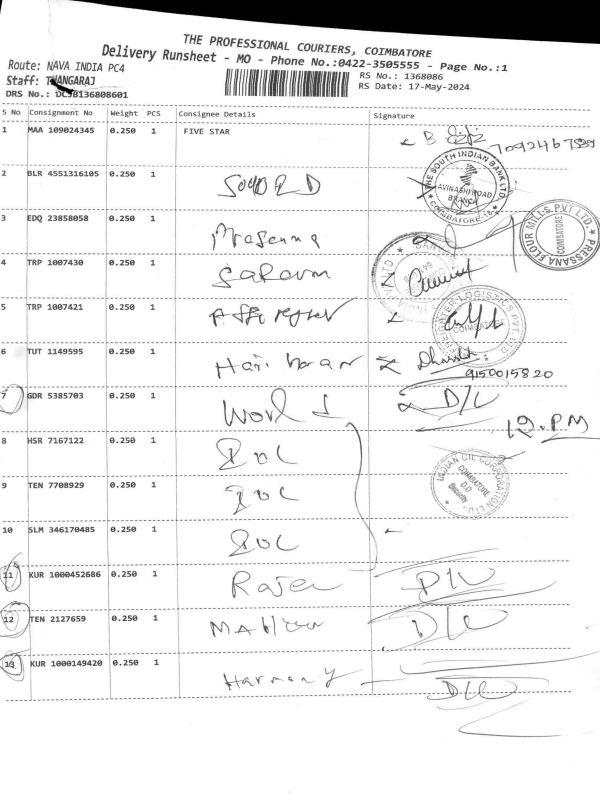 THE PROFESSIONAL COURIERS, COIMBATORE
Delivery Runsheet - MO - Phone No.:0422-3505555 - Page No.:1
Route: NAVA INDIA PC4
RS No.: 1368086
Staff: THANGARAJ
RS Date: 17-May-2024
DRS No.: DCJB136808601
S No Consignment No Weight PCS Consignee Details Signature
1 MAA 109024345 0.250 1 FIVE STAR
2 BLR 4551316105 0.250 1
THE SOUTH INDIAN BANK LTD.
AVINASHI ROAD
BRANCH
COIMBATORE-18
3 EDQ 23858058 0.250 1 Prasanna
PRESSANA FLOUR MILLS PVT LTD
COIMBATORE
4 TRP 1007430 0.250 1
5 TRP 1007421 0.250 1
LOGISTICS PVT LTD
COIMBATORE
6 TUT 1149595 0.250 1 Hari
9150015820
7 GDR 5385703 0.250 1 World D/L
12.PM
8 HSR 7167122 0.250 1 IOC
INDIAN OIL CORPORATION LTD.
COIMBATORE
D.O
Security
9 TEN 7708929 0.250 1 IOC
10 SLM 346170485 0.250 1 IOC
11 KUR 1000452686 0.250 1 D/L
12 TEN 2127659 0.250 1 D/L
13 KUR 1000149420 0.250 1 Harmony D/L